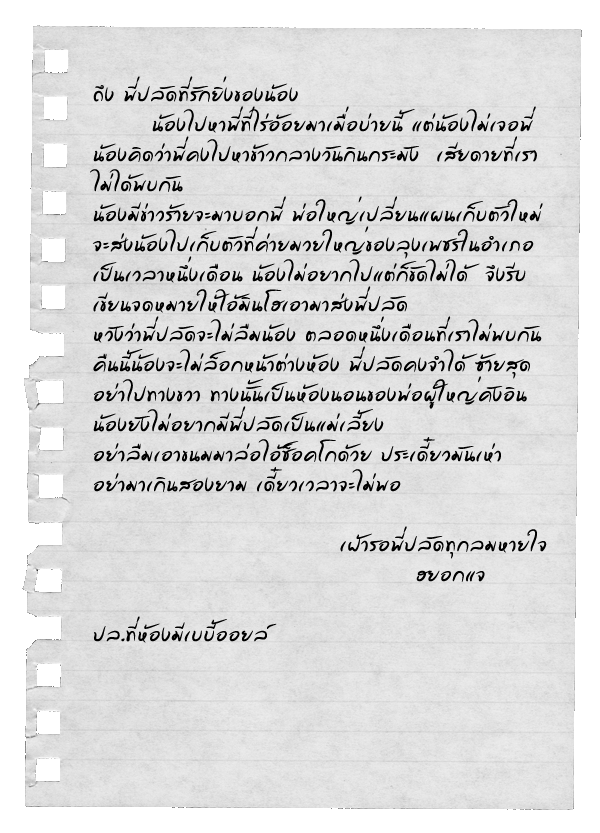 ถึง พี่ปลัดที่รักยิ่งของน้อง
น้องไปหาพี่ที่ไร่อ้อยมาเมื่อบ่ายนี้ แต่น้องไม่เจอพี่
น้องคิดว่าพี่คงไปหาข้าวกลางวันกินกระมัง เสียดายที่เรา
ไม่ได้พบกัน
น้องมีข่าวร้ายจะมาบอกพี่ พ่อใหญ่เปลี่ยนแผนเก็บตัวใหม่
จะส่งน้องไปเก็บตัวที่ค่ายมวยใหญ่ของลุงเพชรในอำเภอ
เป็นเวลาหนึ่งเดือน น้องไม่อยากไปแต่ก็ขัดไม่ได้ จึงรีบ
เขียนจดหมายให้ไอ้มินโฮเอามาส่งพี่ปลัด
หวังว่าพี่ปลัดจะไม่ลืมน้อง ตลอดหนึ่งเดือนที่เราไม่พบกัน
คืนนี้น้องจะไม่ล็อกหน้าต่างห้อง พี่ปลัดคงจำได้ ซ้ายสุด
อย่าไปทางขวา ทางนั้นเป็นห้องนอนของพ่อผู้ใหญ่คังอิน
น้องยังไม่อยากมีพี่ปลัดเป็นแม่เลี้ยง
อย่าลืมเอาขนมมาล่อไอ้ช็อคโกด้วย ประเดี๋ยวมันเห่า
อย่ามาเกินสองยาม เดี๋ยวเวลาจะไม่พอ
เฝ้ารอพี่ปลัดทุกลมหายใจ
ฮยอกแจ
ปล.ที่ห้องมีเบบี้ออยล์